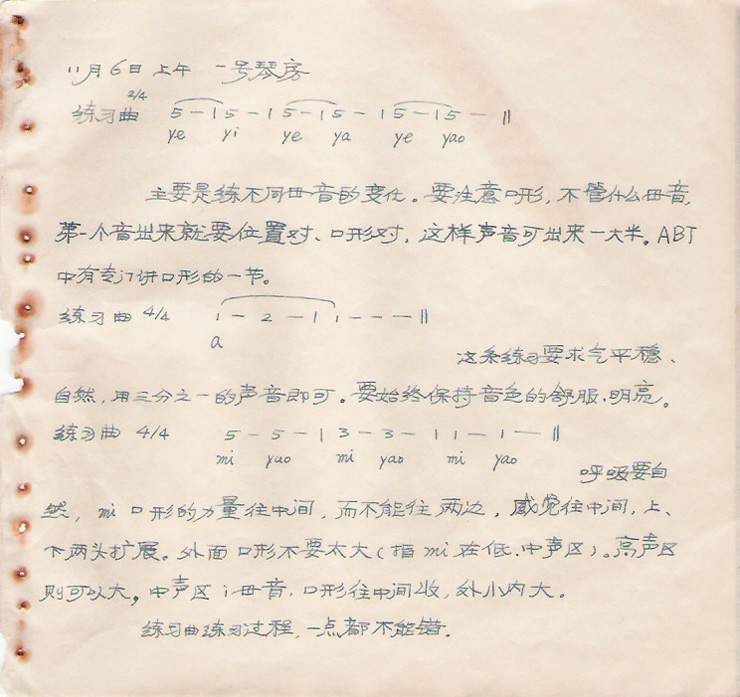 11月6日上午 一号琴房
练习曲 2/4 5 - | 5 - | 5 - | 5 - | 5 - | 5 - ‖
ye yi ye ya ye yao
主要是练不同母音的变化。要注意口形,不管什么母音,
第一个音出来就要位置对、口形对,这样声音可出来一大半。ABT
中有专门讲口形的一节。
练习曲 4/4 1 - 2 - | 1 - - - ‖
a
这条练习要求气平稳、
自然,用三分之一的声音即可。要始终保持音色的舒服.明亮。
练习曲 4/4 5 - 5 - | 3 - 3 - | 1 - 1 - ‖
mi yao mi yao mi yao
呼吸要自
然,mi 口形的力量往中间,而不能往两边,感觉往中间,上、
下两头扩展。外面口形不要太大(指mi在低.中声区)。高声区
则可以大,中声区i母音.口形往中间收,外小内大。
练习曲练习过程,一点都不能错.